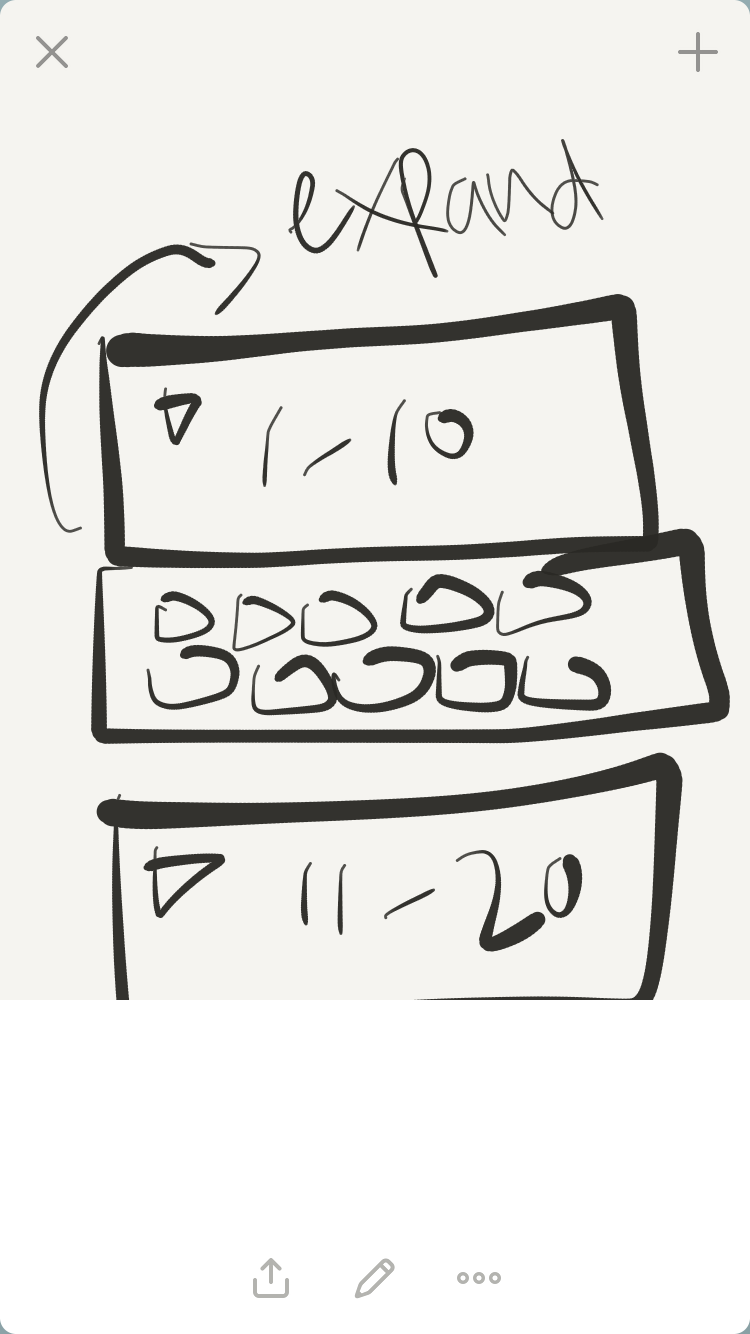 expand
1-10
11-20